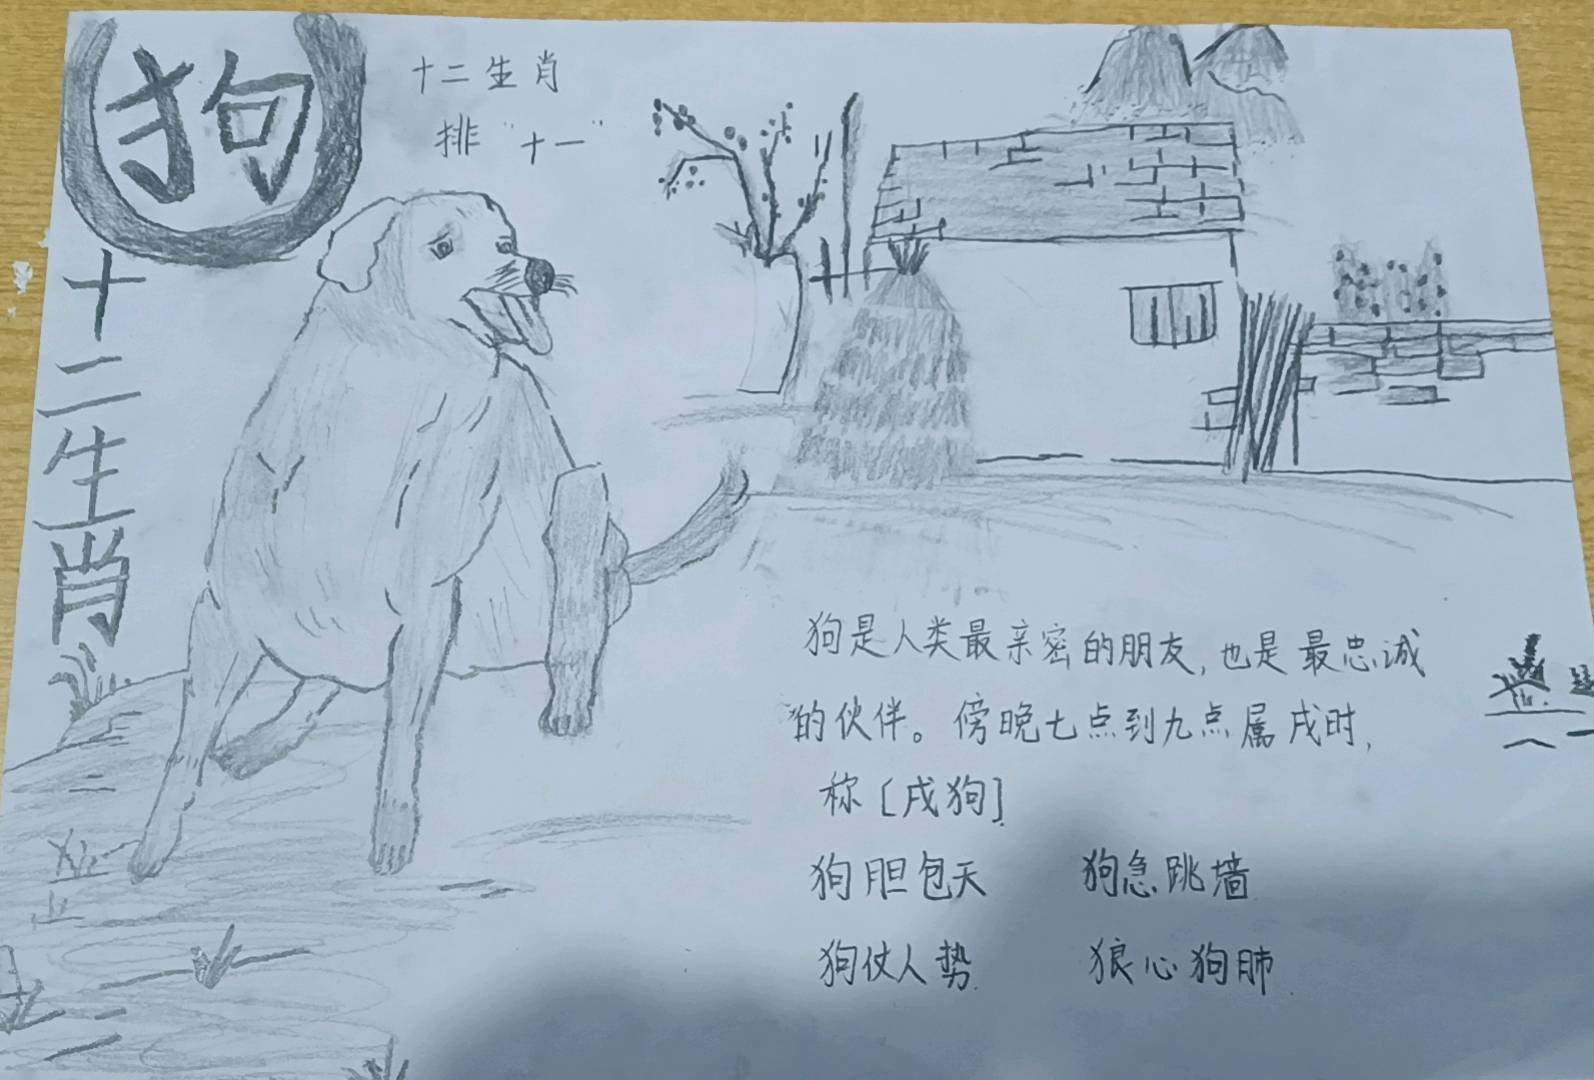 狗
十二生肖
十二生肖
排“十一”
狗是人类最亲密的朋友,也是最忠诚
的伙伴。傍晚七点到九点属戌时,
称[戌狗]
狗胆包天 狗急跳墙
狗仗人势 狼心狗肺